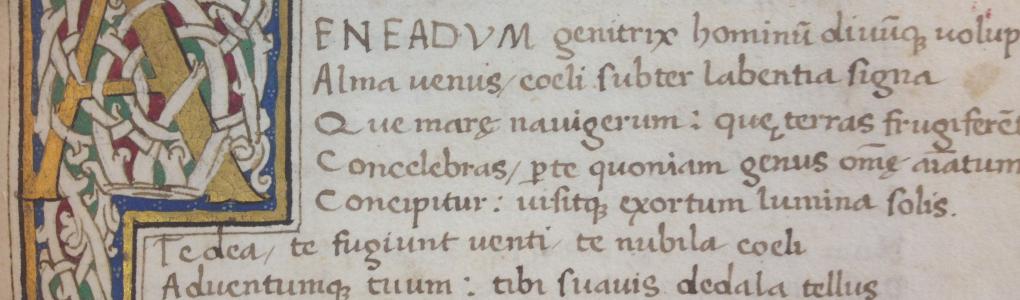 AENEADVM genitrix hominū diuūq; uolup
Alma uenus/ coeli subter labentia signa
Que mare nauigerum : quę terras frugiferēt
Concelebras/ ꝑte quoniam genus omē aīatum
Concipitur : uisitq; exortum lumina solis.
Te dea/ te fugiunt uenti/ te nubila coeli
Aduentumq; tuum : tibi suauis dedala tellus